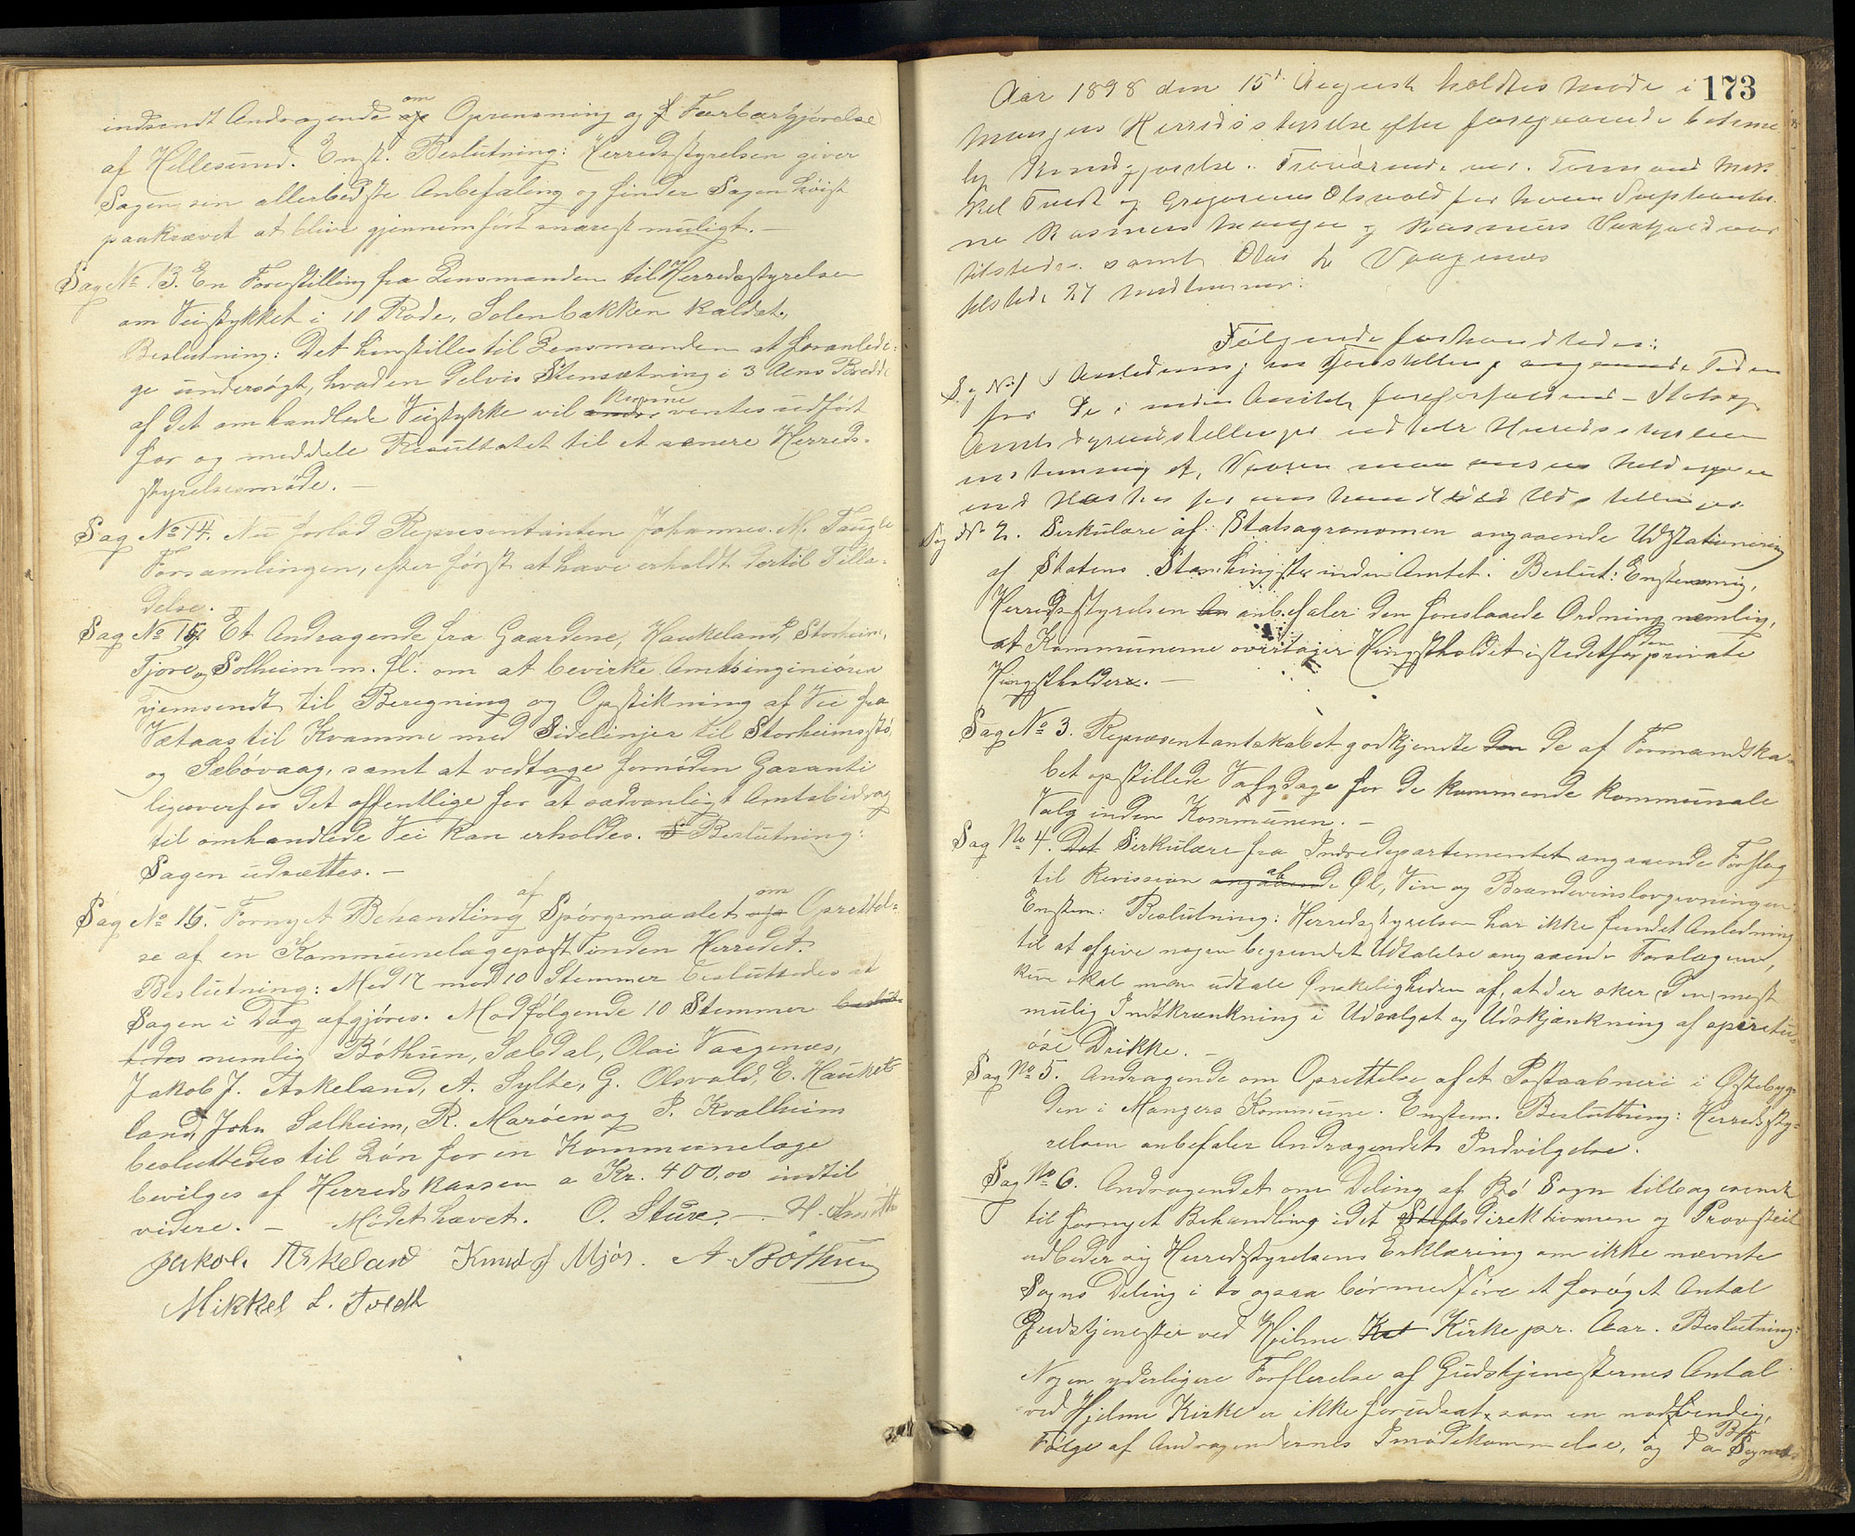 indsendt Andragende om Oprensning og Farbargjørelse
af Hillesund. Enst. Beslutning: Herredsstyrelsen giver
Sagen sen allerbedste Anbefaling og finder Sagen høist
paakrævet at blive gjennemført snarest muligt. —
Sag No 13. En Forestilling fra Lensmanden til Herredsstyrelsen
om Veistykket i 10 Rode, Solenbakken kaldet.
Beslutning: Det henstilles til Lensmanden at foranledi-
ge undersøgt, hvad en delvis Stensætning i 3 Alens Bredde
af det omhandlede Veistykke vil kunne ventes udført
for og meddele Resultatet til et senere Herreds-
styrelsesmøde. —
Sag No 14. Nu forlod Repræsentanten Johannes N. Taugle
Forsamlingen, efter først at have erholdt dertil Tilla-
delse. —
Sag No 15. Et Andragende fra Gaardene, Haukeland, Storheim,
Tjore og Solheim m. fl. om at bevirke Amtsingeniøren
hjemsendt til Beregning og Opstikning af Vei fra
Vetaas til Kvamme med Sidelinjer til Storheimsstø
og Sæbøvaag, samt at vedtage fornøden Garanti
ligeoverfor det offentlige for at sædvanligt Amtsbidrag
til omhandlede Vei kan erholdes. Beslutning:
Sagen udsættes. —
Sag No 16. Fornyet Behandling af Spørgsmaalet om Oprettel-
se af en Kommunelægepost inden Herredet.
Beslutning: Med 17 mod 10 Stemmer besluttedes at
Sagen i Dag afgjøres. Mod følgende 10 Stemmer beslut-
tedes nemlig Bøthun, Sæbdal, Olai Vaagenæs,
Jakob J. Askeland, A. Sylte, G. Olsvold, E. Hauke-
land, John Salheim, R. Marøen og P. Kvalheim
besluttedes til Løn for en Kommunelæge
bevilges af Herredskassen a Kr. 400,00 indtil
videre. — Mødet hævet. O. Sture. — H.
Jakob. Askeland Knud J Mjøs. A Bøthun
Mikkel L. Tvedt
173
Aar 1898 den 15d August holdtes Møde i
Mangers Herredsstyrelse efter foregaaende betime-
lig Kundgjørelse. Fraværende var. Formand Mik
kel Tvedt og Gregorius Olsvold for hvem Suppleanter
ne Rasmus Manger og Rasmus var
tilstede. samt Olai L Vaagenæs
tilstede 27 Medlemmer.
Følgende forhandledes:
Sag No 1 I Anledning en Forestilling angaaende Tiden
for De i inden Amtet forefaldende Stats og
Amts Dyrudstillinger udtalte Herredsstyrelsen
enstemmig at, Vaaren maa ansees heldigere
end Høsten for omhandlede Udstillinger
Sag No 2. Sirkulære af Statsagronomen angaaende Udstationering
af Statens Stamhingster inden Amtet. Beslut: Enstemmig,
Herredsstyrelsen anbefaler den foreslaaede Ordning nemlig,
at Kommunerne overtager Hingsteholdet istedetfor den private
Hingstholdere. —
Sag No 3. Repræsentantskabet godkjendte den de af Formandska-
bet opstillede Valgdage for de kommende kommunale
Valg inden Kommunen. —
Sag No 4. Det Sirkulære fra Indredepartementet angaaende Forslag
til Revission angaaende af Øl, Vin og Brændevinslovgivningen.
Enstem: Beslutning: Herredsstyrelsen har ikke fundet Anledning
til at afgive nogen begrundet Udtalelse angaaende Forslagene,
kun skal man udtale Ønskeligheden af, at der sker den mest
mulig Indskrænkning i Udsalget og Udskjænkning af spiritu-
øse Drikke. —
Sag No 5. Andragende om Oprettelse af et Postaabneri i Østebyg-
den i Mangers Kommune. Enstem. Beslutning: Herredssty-
relsen anbefaler Andragendets Indvilgelse.
Sag No 6. Andragendet om Deling af Bø Sogn tilbagesendt
til fornyet Behandling idet Stiftsdirektionen og Provsteit
udbeder sig Herredsstyrelsens Erklæring om ikke nævnte
Sogns Deling i to ogsaa bør medføre et forøget Antal
Gudstjenester ved Hjelme Kirke pr. Aar. Beslutning:
Nogen yderligere Forflerelse af Gudstjenesternes Antal
ved Hjelme Kirke er ikke forudsat som en nødvendig
Følge af Andragendernes Imødekommelse, og da Bø Sogns